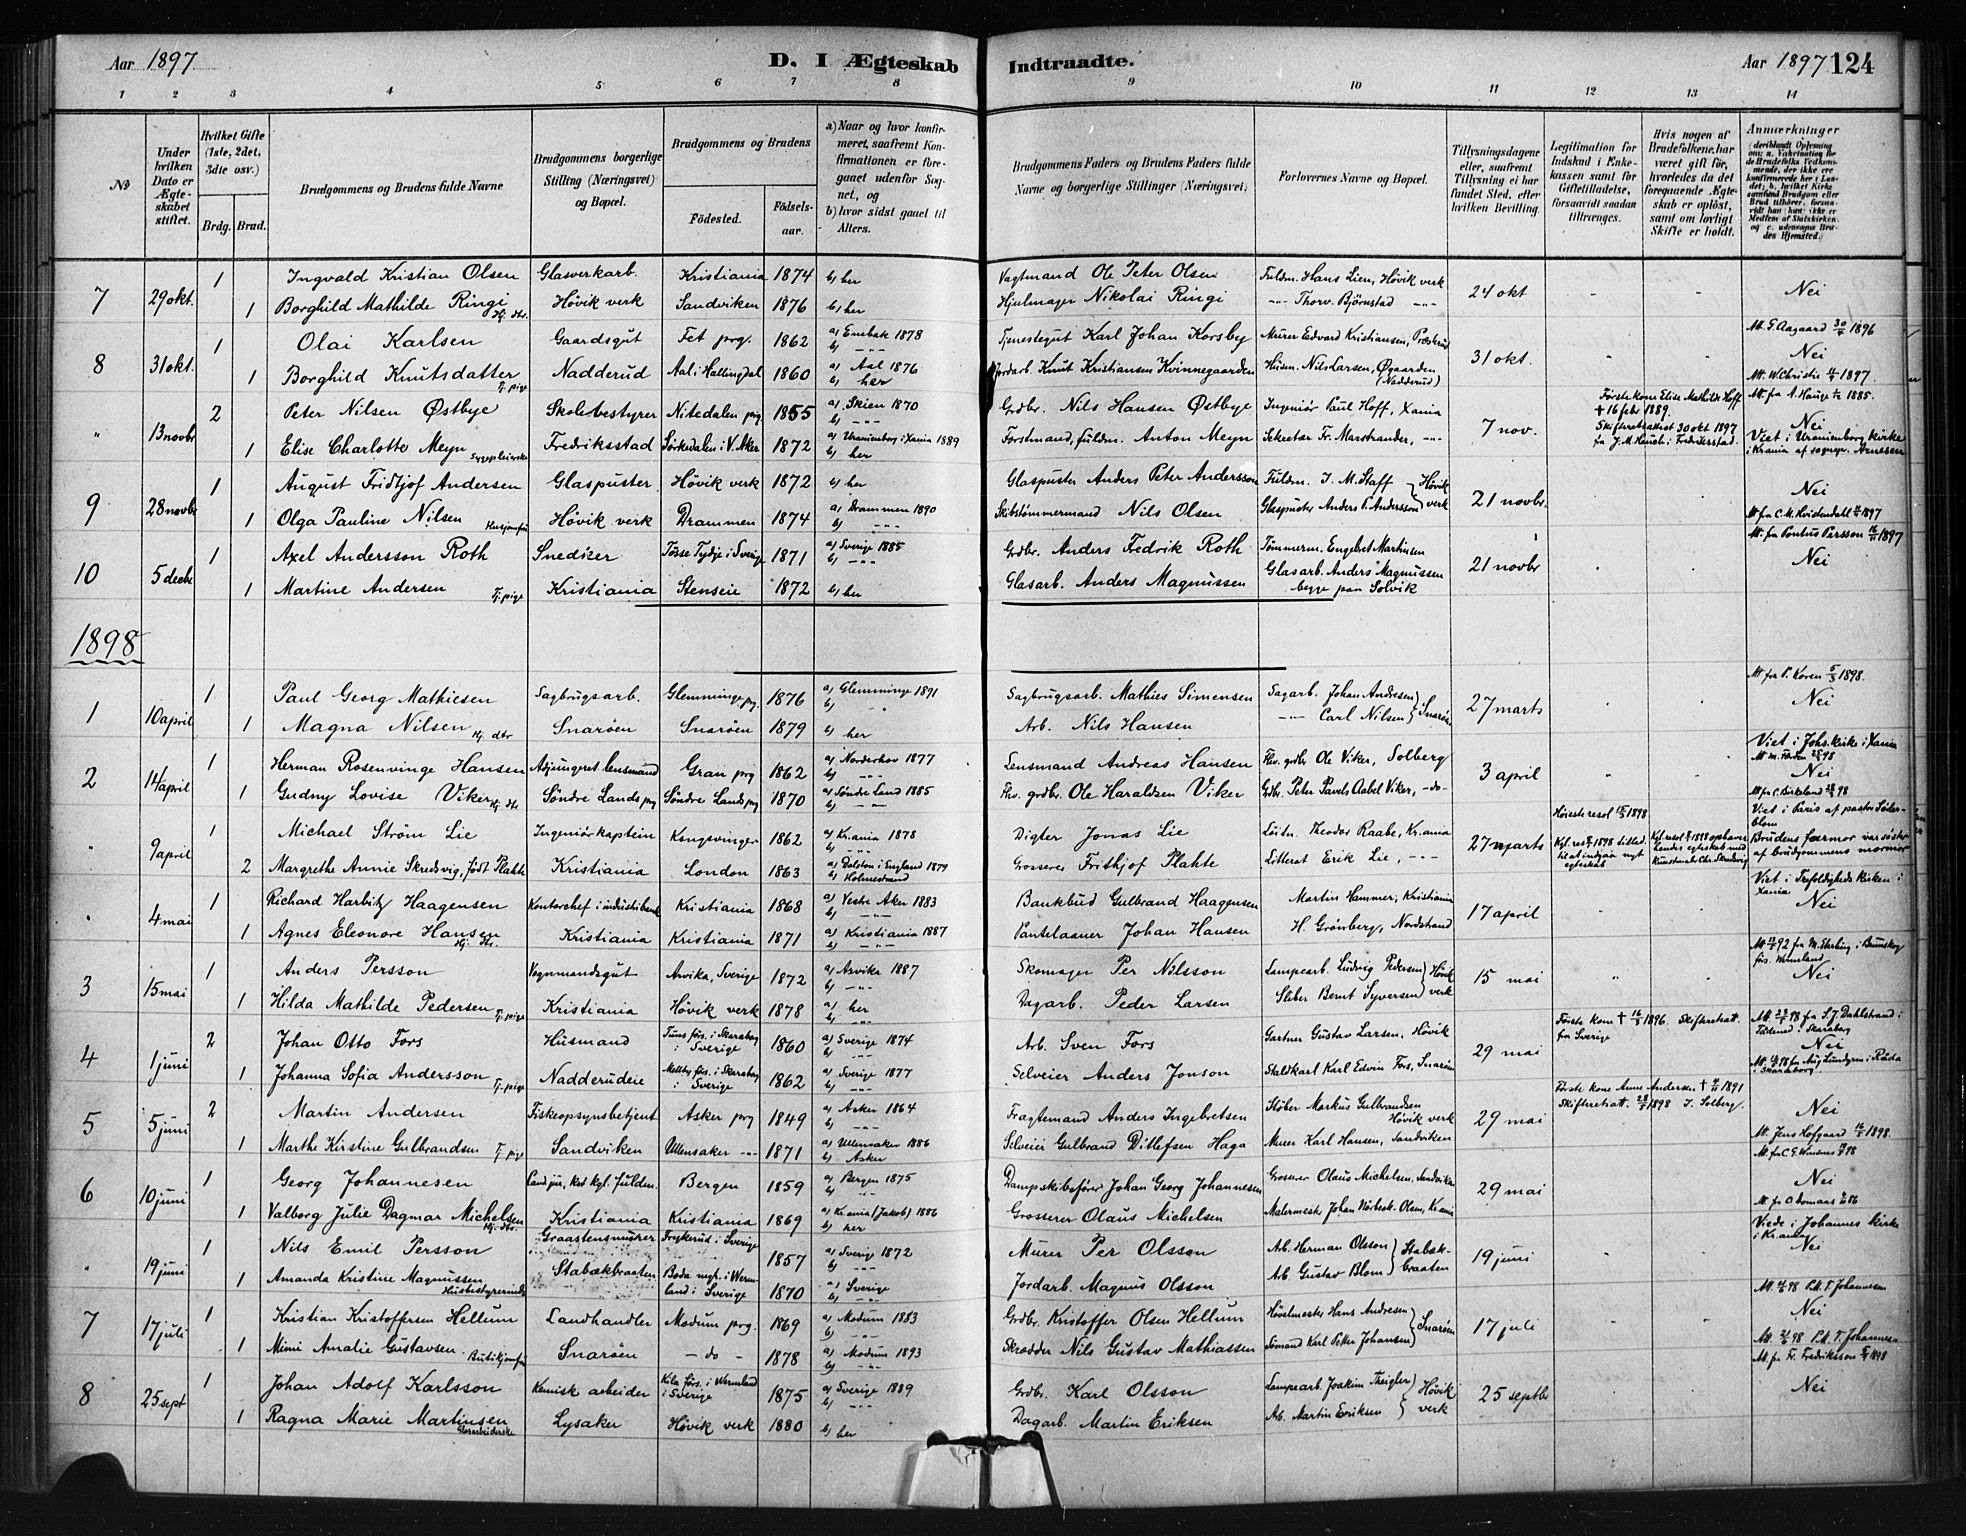 Aar 1897
D. I Ægteskab Indtraadte.
Aar 1897 124
1 2 3 4 5 6 7 8 9 10 11 12 13 14
№
Under hvilken Dato er Ægteskabet stiftet.
Hvilket Gifte (1ste, 2det, 3die osv.)
Brdg. Brud.
Brudgommens og Brudens fulde Navne
Brudgommens borgerlige Stilling (Næringsvei) og Bopæl.
Brudgommens og Brudens
Födested.
Födselsaar.
a) Naar og hvor konfirmeret, saafremt Konfirmationen er foregaaet udenfor Sognet, og
b) hvor sidst gaaet til Alters.
Brudgommens Faders og Brudens Faders fulde Navne og borgerlige Stillinger (Næringsvei)
Forlovernes Navne og Bopæl.
Tillysningsdagene eller, saafremt Tillysning ei har fundet Sted, efter hvilken Bevilling.
Legitimation for Indskud i Enkekassen samt for Giftetilladelse, forsaavidt saadan tiltrænges.
Hvis nogen af Brudefolkene, har været gift för, hvorledes da det foregaaende Ægteskab er oplöst, samt om lovligt Skifte er holdt.
Anmærkninger
7 29 okt. 1 Ingvald Kristian Olsen Glasverkarb. Kristiania 1874 b) her Vagtmand Ole Peter Olsen Fuldm. Hans Lien, Høvik verk 24 okt Nei
1 Borghild Mathilde Ringi Hj. dtr. Høvik verk Sandviken 1876 b) her Hjulmager Nikolai Ringi -"- Thorv. Bjørnstad -"-
8 31 okt. 1 Olai Karlsen Gaardsgut Fet prg. 1862 a) Enebak 1878 b) -"- Tjenestegut Karl Johan Korsby Murer Edvard Kristiansen, 31 okt. 1896 Nei
1 Borghild Knutsdatter Tj. pige Nadderud Aal i Hallingdal 1860 a) Aal 1876 b) her Jordarb. Knut Kristiansen Kvinnegaarden Husm. Nils Larsen, Øgaarden (Nadderud) Att. W. Christie 1897.
" 13 novbr 2 Peter Nilsen Østbye Skolebestyrer Nitedalen prg 1855 a) Skien 1870 b) -"- Grdbr. Nils Hansen Østbye Ingeniør Paul Hoff, Xania 7 nov. Første kone Elise Mathilde Hoff + 16 febr 1889. Skifteretsattest 30 okt 1897 Att. fra A. Hauge 1885. Nei
1 Elise Charlotte Meyn Sygepleierske Fredriksstad Sørkedalen i V. Aker 1872 a) Uranienborg i Xania 1889 b) her Forstmand, fuldm. Anton Meyn Sekretær Fr. Marstrander, -"- Viet i Uranienborg kirke i Krania af sognepr. Arnesen
9 28 novbr 1 August Fridtjof Andersen Glaspuster Høvik verk 1872 b) her Glaspuster Anders Peter Andersson Fuldm. I. M. Staff Høvik verk 21 novbr. Nei
1 Olga Pauline Nilsen Husjomfru Høvik verk Drammen 1874 a) Drammen 1890 b) -"- Skibstømmermand Nils Olsen Glaspuster Anders P. Andersson 1897
10 5 decbr 1 Axel Andersson Roth Snedker Tösse Tydje i Sverige 1871 a) Sverige 1885 b) -"- Grdbr. Anders Fredrik Roth Tømmerm. Engebret Martinsen 21 novbr Att. fra Pontus Persson 1897 Nei
1 Martine Andersen Tj. pige Kristiania Stenseie 1872 b) her Glasarb. Anders Magnussen Glasarb. Anders Magnussen begge paa Solvik
1898
1 10 april 1 Paul Georg Mathiesen Sagbrugsarb. Glemminge prg. 1876 a) Glemminge 1891 b) " Sagbrugsarb. Mathies Simensen Sagarb. Johan Andresen Snarøen 27 marts Att. fra P. Koren 5/3 1898. Nei
1 Magna Nilsen Hj. dtr Snarøen Snarøen 1879 b) her Arb. Nils Hansen -"- Carl Nilsen
2 14 april 1 Herman Rosenvinge Hansen Adjungeret lensmand Gran prg 1862 a) Norderhov 1877 b) -"- Lensmand Andreas Hansen Fhv. grdbr Ole Viker, Solberg 3 april Viet i Johs. kirke i Xania Nei
1 Gudny Lovise Viker Hj. dtr Søndre Lands prg Söndre Lands prg 1870 a) Søndre Land 1885 b) -"- Fhv. grdbr. Ole Haraldsen Viker Grdbr. Peter Pavels Aabel Viker, -do- Att. fr C. Birkeland 98
" 9 april 1 Michael Strøm Lie Ingeniørkaptein Kongsvinger 1862 a) Kr.ania 1878 b) -"- Digter Jonas Lie Löitn. Theodor Raabe, Kr.ania 27 marts Høieste resol 1898 Viet i Paris af pastor Söderblom
2 Margrethe Annie Skredsvig, født Plahte Kristiania London 1863 a) Dalston i England 1879 b) Holmestrand Grosserer Frithjof Plahte Litterat Erik Lie, -"- Kgl. res. 1898 tillad. til at indgaa nyt egteskab Kgl. resol 1898 ophæver hendes egteskab med Kunstmaler Chr. Skredsvig Brudens farmor var søster af brudgommens mormor
" 4 mai 1 Richard Harbitz Haagensen Kontorchef i industribank Kristiania 1868 a) Vestre Aker 1883 b) -"- Bankbud Gulbrand Haagensen Martin Hammer, Kristiania 17 april Viet i Trefoldigheds Kirken i Xania Nei
1 Agnes Eleonore Hansen Hj. dtr. Kristiania Kristiania 1871 a) Kristiania 1887 b) -"- Pantelaaner Johan Hansen H. Grønberg, Nordstrand
3 15 mai 1 Anders Persson Vognmandsgut Arvika, Sverige 1872 a) Arvika 1887 b) -"- Skomager Per Nilsson Lampearb. Ludvig Pedersen Høvik verk 15 mai Nei
1 Hilda Mathilde Pedersen Tj. pige Kristiania Høvik verk 1878 a) her b) -"- Dagarb. Peder Larsen Sliber Bernt Syversen
4 1 juni 2 Johan Otto Fors Husmand Tuns förs. i Skaraborg i Sverige 1860 a) Sverige 1874 b) -"- Arb. Sven Fors Gartner Gustav Larsen, Høvik 29 mai Første kone + 1896. Skifteretsatt. fra Sverige Nei
1 Johanna Sofia Andersson Tj. pige Nadderudeie Mellby förs. i Skaraborg i Sverige 1862 a) Sverige 1877 b) -"- Selveier Anders Jonson Staldkarl Karl Edvin Fors, Snarøen
5 5 juni 2 Martin Andersen Fiskeopsynsbetjent Asker prg 1849 a) Asker 1864 b) -"- Fragtemand Anders Ingebretsen Støber Markus Gulbrandsen Høvik verk 29 mai Første kone Anne Andersen + 1891 Skifteretsatt. 1898 I. Solberg. Nei
1 Marthe Kirstine Gulbrandsen Tj. pige Sandviken Ullensaker -"- 1871 a) Ullensaker 1886 b) Asker Selveier Gulbrand Ditlefsen Haga Murer Karl Hansen, Sandviken Att. Jens Hofgaard 1898.
6 10 juni 1 Georg Johannesen Bergen 1859 a) Bergen 1875 b) -"- Dampskibsfører Johan Georg Johannesen Grosserer Olaus Michelsen, Sandviken 29 mai Nei
1 Valborg Julie Dagmar Michelsen Hj. dtr. Kristiania Kristiania 1869 a) Kr.ania (Jakob) 1886 b) her Grosserer Olaus Michelsen Viede i Johannes kirke i Kr.ania
" 19 juni 1 Nils Emil Persson Graastensmurer Frykerud i Sverige 1857 a) Sverige 1872 b) -"- Murer Per Olsson Arb. Herman Olsson Stabækbraaten 19 juni Nei
1 Amanda Kristine Magnussen Husbestyrerinde Stabækbraaten Boda i Wermland i Sverige 1870 a) Sverige b) -"- Jordarb. Magnus Olsson Arb. Gustav Blom
7 17 juli 1 Kristian Kristoffersen Hellum Landhandler Modum prg. 1869 a) Modum 1883 b) -"- Grdbr. Kristoffer Olsen Hellum Høvelmester Hans Andresen Snarøen 17 juli Att. 98 P.M. T. Johannesen Nei
1 Mimi Amalie Gustavsen Butikjomfru Snarøen - do - 1878 a) Modum 1893 b) -"- Skrædder Nils Gustav Mathiassen Sömand Karl Petter Johansen Att. 98 P.M. T. Johannesen
8 25 sept 1 Johan Adolf Karlsson Kemisk arbeider Kila förs. i Wermland i Sverige 1875 a) Sverige 1889 b) -"- Grdbr. Karl Olsson Lampearb. Joakim Theigler Høvik verk 25 septbr Att. fra Fr. Fredriksson 1898 Nei
1 Ragna Marie Martinsen Glasarbeiderske Lysaker Høvik verk 1880 b) her Dagarb. Martin Eriksen Arb. Martin Eriksen